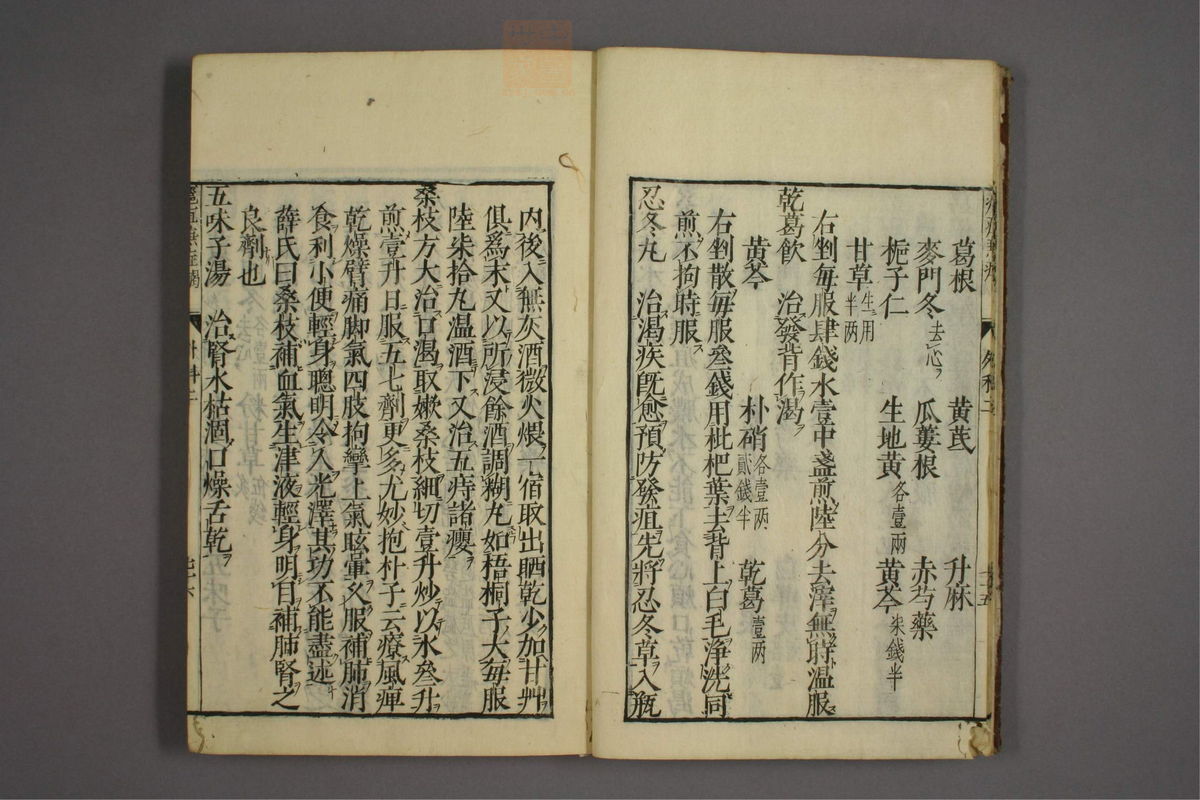 葛根 黄芪 升麻
麥門冬去心 瓜蔞根 赤芍藥
梔子仁 生地黄各壹兩 黄芩柒錢半
甘草生用半两
右剉毎服肆錢水壹中盞煎陸分去滓無時温服
乾葛飲 治發背作渴
黄芩 朴硝各壹两貳錢半 乾葛壹两
右剉散毎服叁錢用枇杷葉去背上白毛淨洗同
煎不拘時服
忍冬丸 治渴疾旣愈預防發疽先將忍冬草入瓶
内後入無灰酒微火煨一宿取出晒乾少加甘艸
俱爲末又以所浸餘酒調糊丸如梧桐子大毎服
陸柒拾丸温酒下又治五痔諸癭
桒枝方大治口渴取嫰桒枝細切壹升炒以水叁升
煎壹升日服五七劑更多尤妙抱朴子云療風痺
乾燥臂痛脚氣四肢拘攣上氣眩暈久服補肺消
食利小便輕身聰明令人光澤其功不能盡述
薛氏曰桑枝補血氣生津液輕身明目補肺腎之
良劑也
五味子湯 治腎水枯涸口燥舌乾
外科二